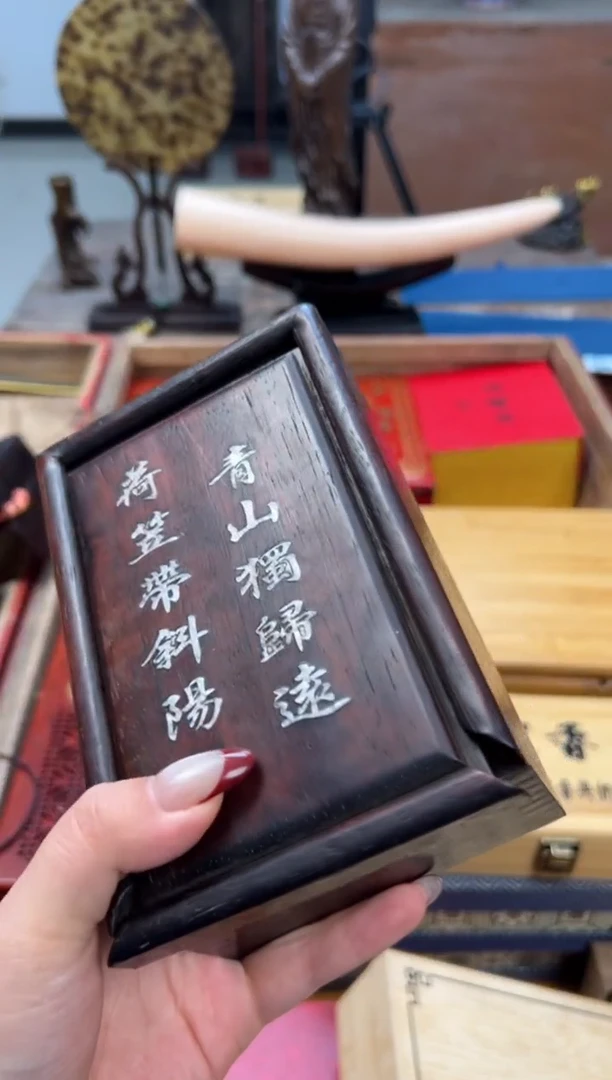 荷笠帶斜陽
青山獨歸遠